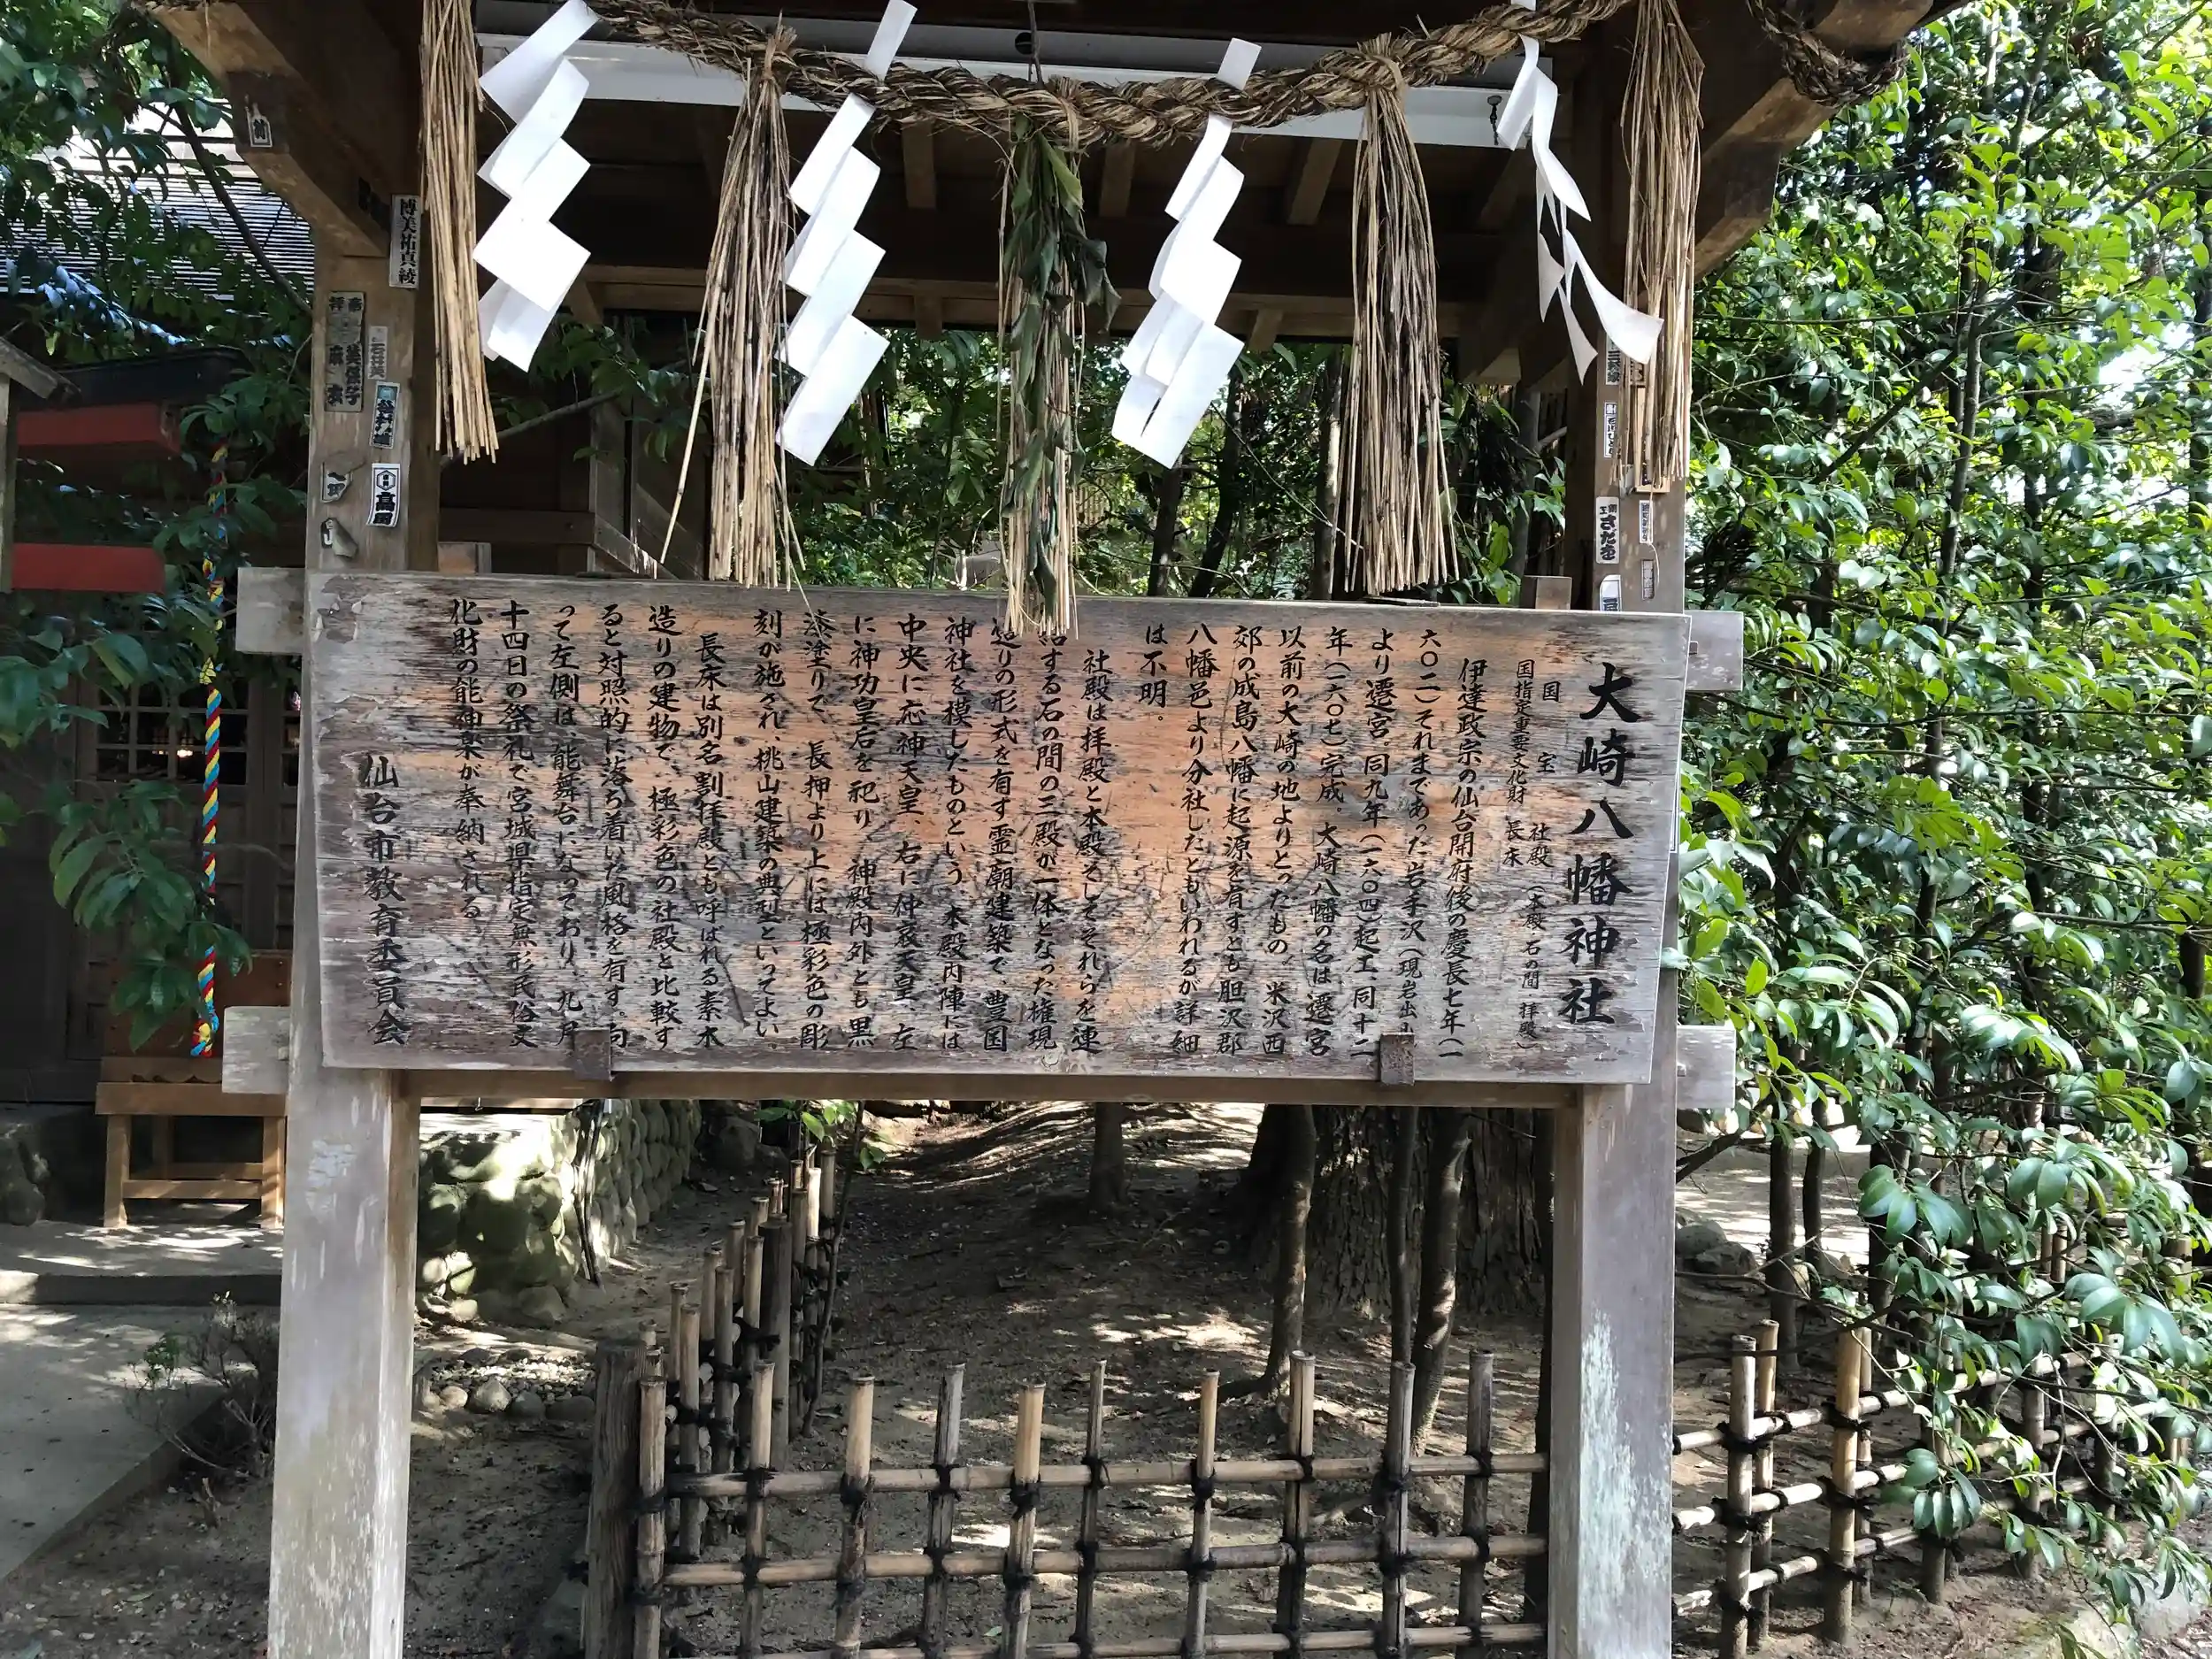 大崎八幡神社
国宝 社殿(本殿 石の間 拝殿)
国指定重要文化財 長床
伊達政宗の仙台開府後の慶長七年(一
六〇二)それまであった岩手沢(現岩出山)
より遷宮。同九年(一六〇四)起工、同十二
年(一六〇七)完成。大崎八幡の名は遷宮
以前の大崎の地よりとったもの。米沢西
郊の成島八幡に起源を有すとも胆沢郡
八幡邑より分社したともいわれるが詳細
は不明。
社殿は拝殿と本殿そしてそれらを連
結する石の間の三殿が一体となった権現
造りの形式を有す霊廟建築で、豊国
神社を模したものという。本殿内陣には
中央に応神天皇、右に仲哀天皇、左
に神功皇后を祀り、神殿内外とも黒
漆塗りで、長押より上には極彩色の彫
刻が施され、桃山建築の典型といってよい。
長床は別名割拝殿とも呼ばれる素木
造りの建物で、極彩色の社殿と比較す
ると対照的に落ち着いた風格を有す。向
って左側は、能舞台になっており、九月
十四日の祭礼で宮城県指定無形民俗文
化財の能神楽が奉納される。
仙台市教育委員会
博美祐真綾
高野
さだを